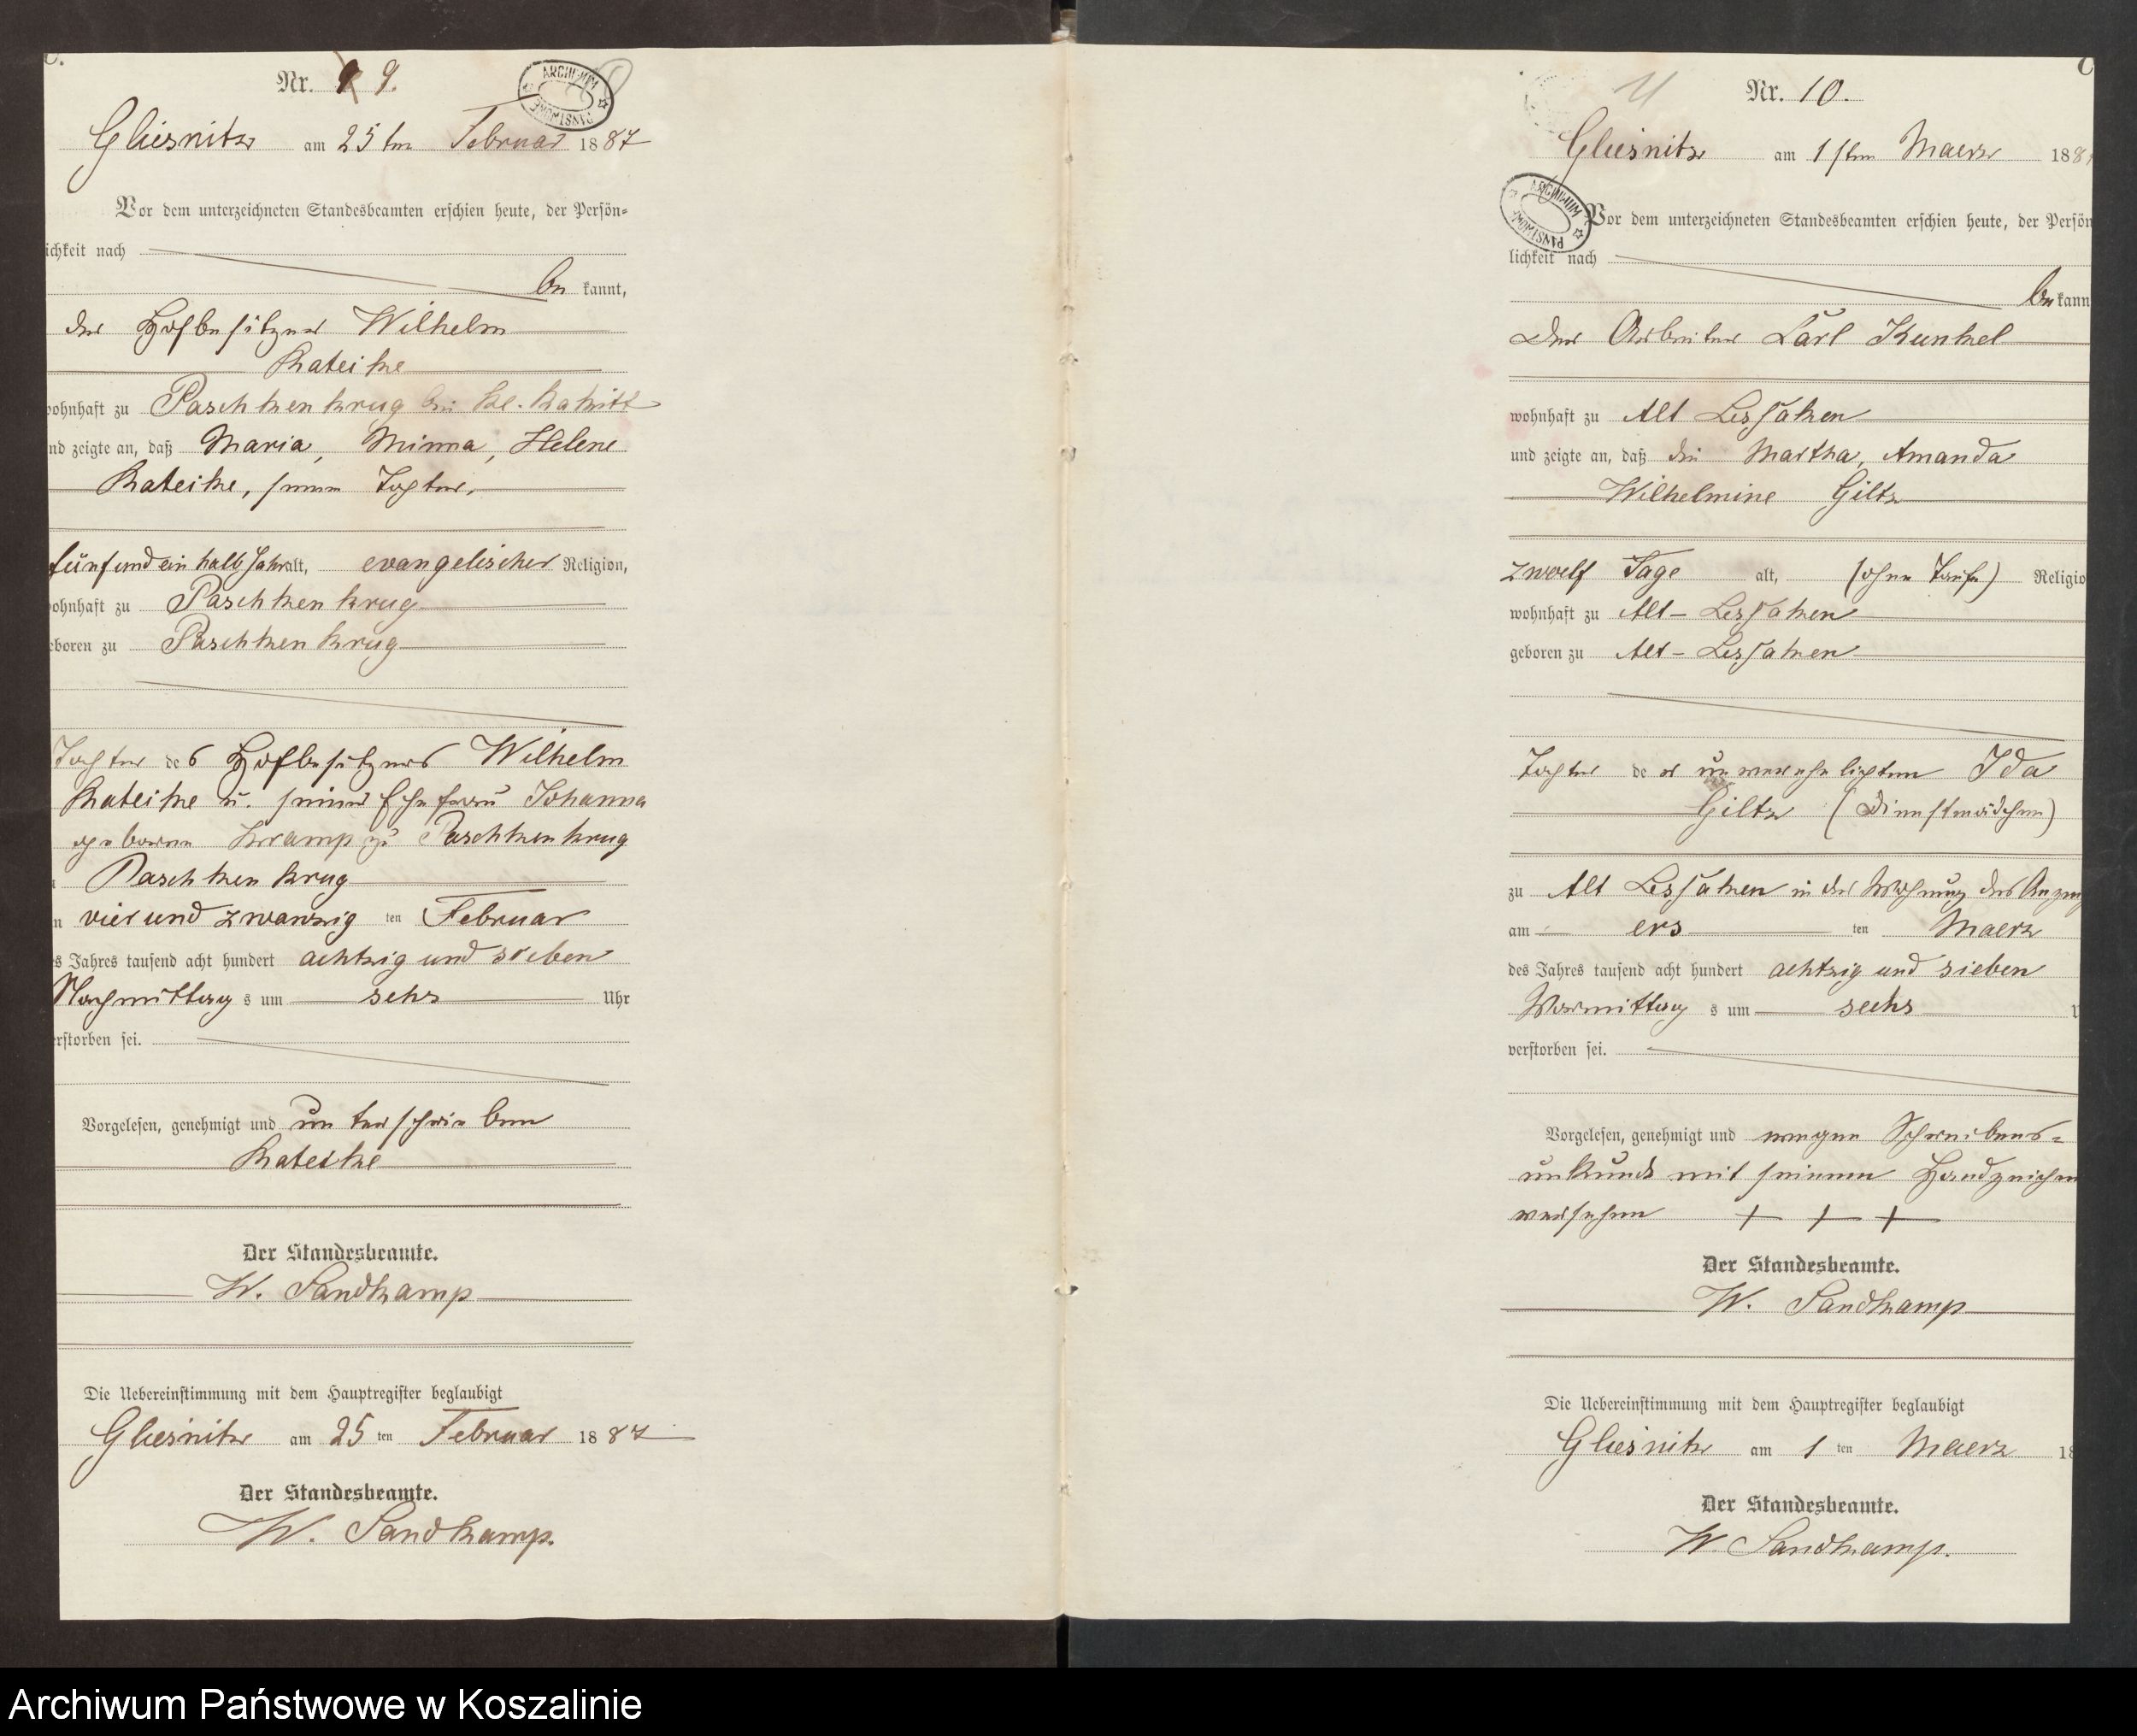 Nr. 9 9.
ARCHIWUM PAŃSTWOWE
Gliesnitz am 25ten Februar 1887
Vor dem unterzeichneten Standesbeamten erschien heute, der Persön=
lichkeit nach
be kannt,
der Hofbesitzer Wilhelm
Rateike
wohnhaft zu Paschkenkrug bei Kl.
und zeigte an, daß Maria, Minna, Helene
Rateike, seine Tochter,
fünf und ein halb Jahr alt, evangelischer Religion,
wohnhaft zu Paschkenkrug
geboren zu Paschkenkrug
Tochter des Hofbesitzers Wilhelm
Rateike u. seiner Ehefrau Johanna
geborne Kramp zu Paschkenkrug
Paschkenkrug
vier und zwanzig ten Februar
des Jahres tausend acht hundert achtzig und sieben
Nachmittag s um sehs Uhr
verstorben sei.
Vorgelesen, genehmigt und unterschrieben
Rateike
Der Standesbeamte.
W. Sandkamp
Die Uebereinstimmung mit dem Hauptregister beglaubigt
Gliesnitz am 25 ten Februar 1887
Der Standesbeamte.
W. Sandkamp.
11
Nr. 10.
Gliesnitz am 1sten Maerz 188
ARCHIWUM PAŃSTWOWE
Vor dem unterzeichneten Standesbeamten erschien heute, der Persön
lichkeit nach
be kann
Der Arbeiter Carl Kunkel
wohnhaft zu Alt Lessaken
und zeigte an, daß die Martha, Amanda
Wilhelmine Giltz
zwoelf Tage alt, (ohne Taufe) Religio
wohnhaft zu Alt-Lessaken
geboren zu Alt-Lessaken
Tochter der unverehelichten Ida
Giltz (Dienstmädchen)
zu Alt Lessaken in der Wohnung des Anzeig
am ers ten Maerz
des Jahres tausend acht hundert achtzig und sieben
Vormittag s um sechs U
verstorben sei.
Vorgelesen, genehmigt und wegen Schreibens=
unkunde mit seinem Handzeichen
versehen + + +
Der Standesbeamte.
W. Sandkamp
Die Uebereinstimmung mit dem Hauptregister beglaubigt
Gliesnitz am 1 ten Maerz 18
Der Standesbeamte.
W. Sandkamp.
Archiwum Państwowe w Koszalinie